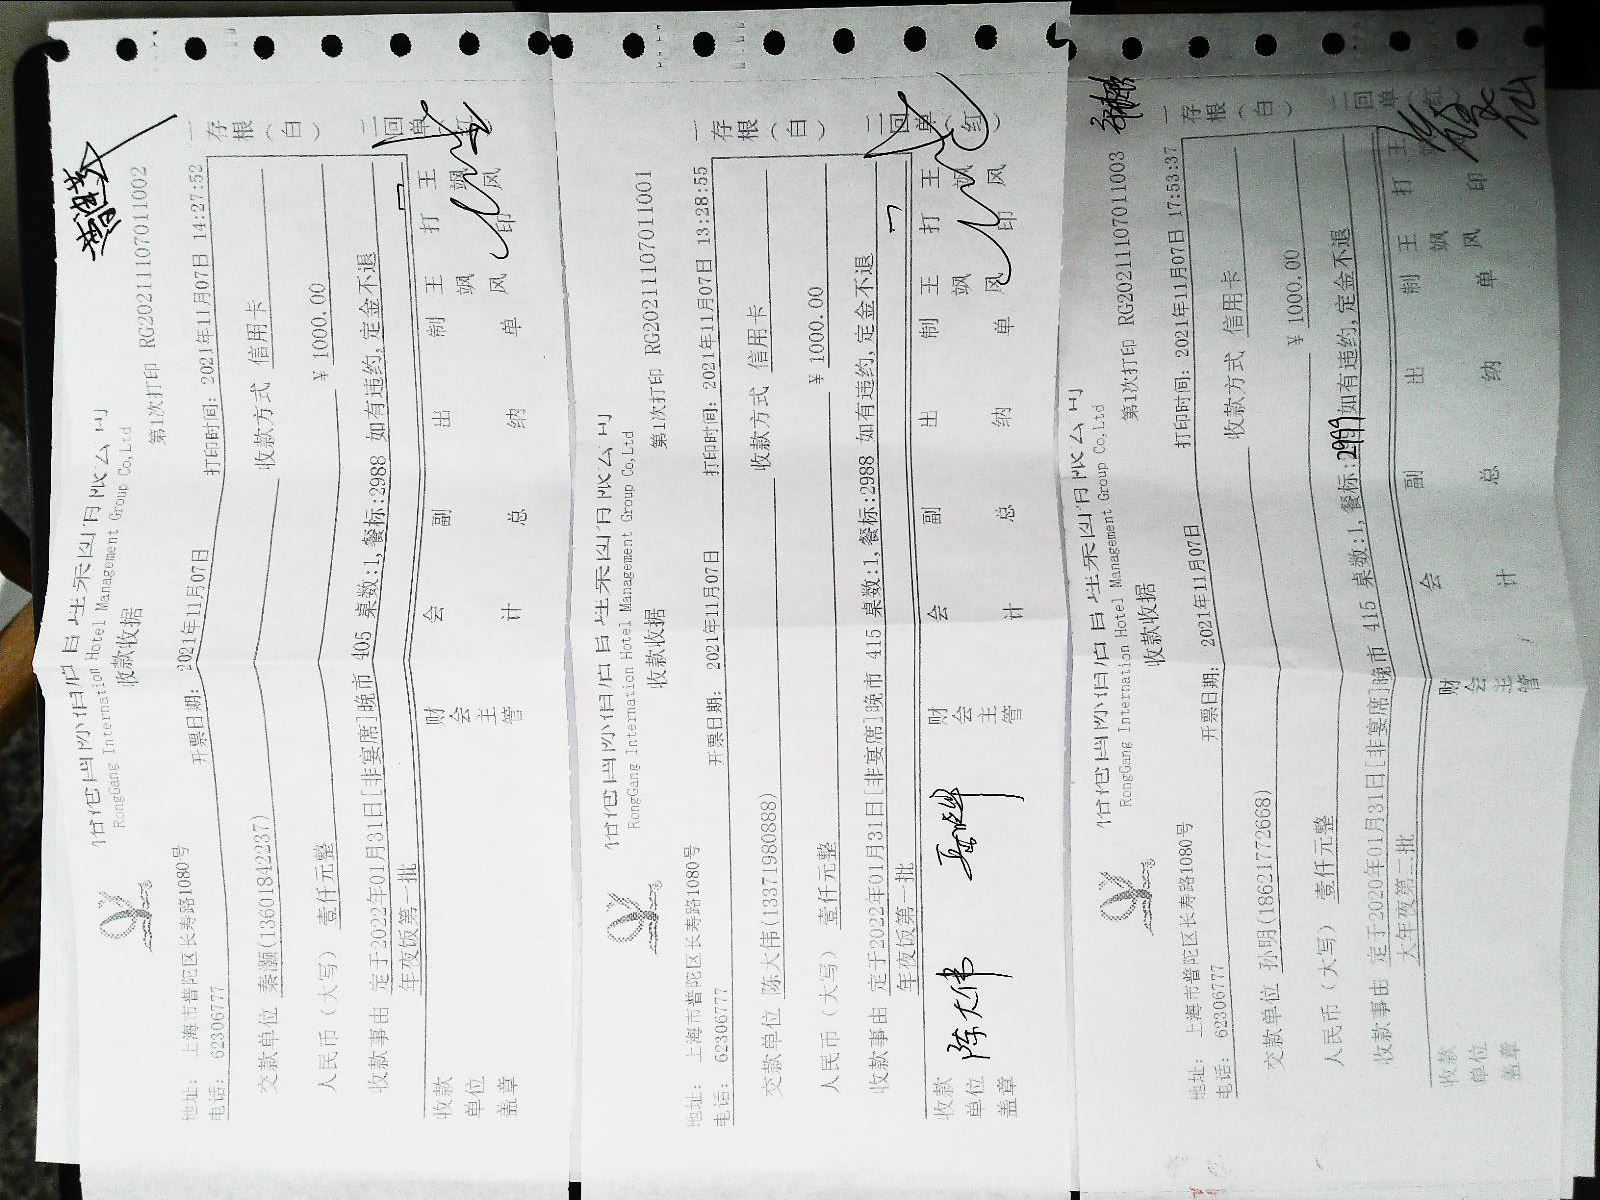 RongGang Internation Hotel Management Group Co,Ltd
收款收据
第1次打印 RG20211107011002
地址: 上海市普陀区长寿路1080号
电话: 62306777
开票日期: 2021年11月07日
打印时间: 2021年11月07日 14:27:52
交款单位 秦灏(13601842237)
收款方式 信用卡
人民币(大写) 壹仟元整
¥ 1000.00
收款事由 定于2022年01月31日[非宴席]晚市 405 桌数:1,餐标:2988 如有违约,定金不退
年夜饭第一批
收款单位盖章
财会主管
会计
副总
出纳
制单
王飒风
打印
王飒风
一存根(白)
二回单(红)
RongGang Internation Hotel Management Group Co,Ltd
收款收据
第1次打印 RG20211107011001
地址: 上海市普陀区长寿路1080号
电话: 62306777
开票日期: 2021年11月07日
打印时间: 2021年11月07日 13:28:55
交款单位 陈大伟(13371980888)
收款方式 信用卡
人民币(大写) 壹仟元整
¥ 1000.00
收款事由 定于2022年01月31日[非宴席]晚市 415 桌数:1,餐标:2988 如有违约,定金不退
年夜饭第一批
收款单位盖章
陈大伟
财会主管
会计
副总
出纳
制单
王飒风
打印
王飒风
一存根(白)
二回单(红)
RongGang Internation Hotel Management Group Co,Ltd
收款收据
第1次打印 RG20211107011003
地址: 上海市普陀区长寿路1080号
电话: 62306777
开票日期: 2021年11月07日
打印时间: 2021年11月07日 17:53:37
交款单位 孙明(18621772668)
收款方式 信用卡
人民币(大写) 壹仟元整
¥ 1000.00
收款事由 定于2020年01月31日[非宴席]晚市 415 桌数:1,餐标:2999如有违约,定金不退
大年夜第二批
收款单位盖章
财会主管
会计
副总
出纳
制单
王飒风
打印
王飒
一存根(白)
二回单(红)